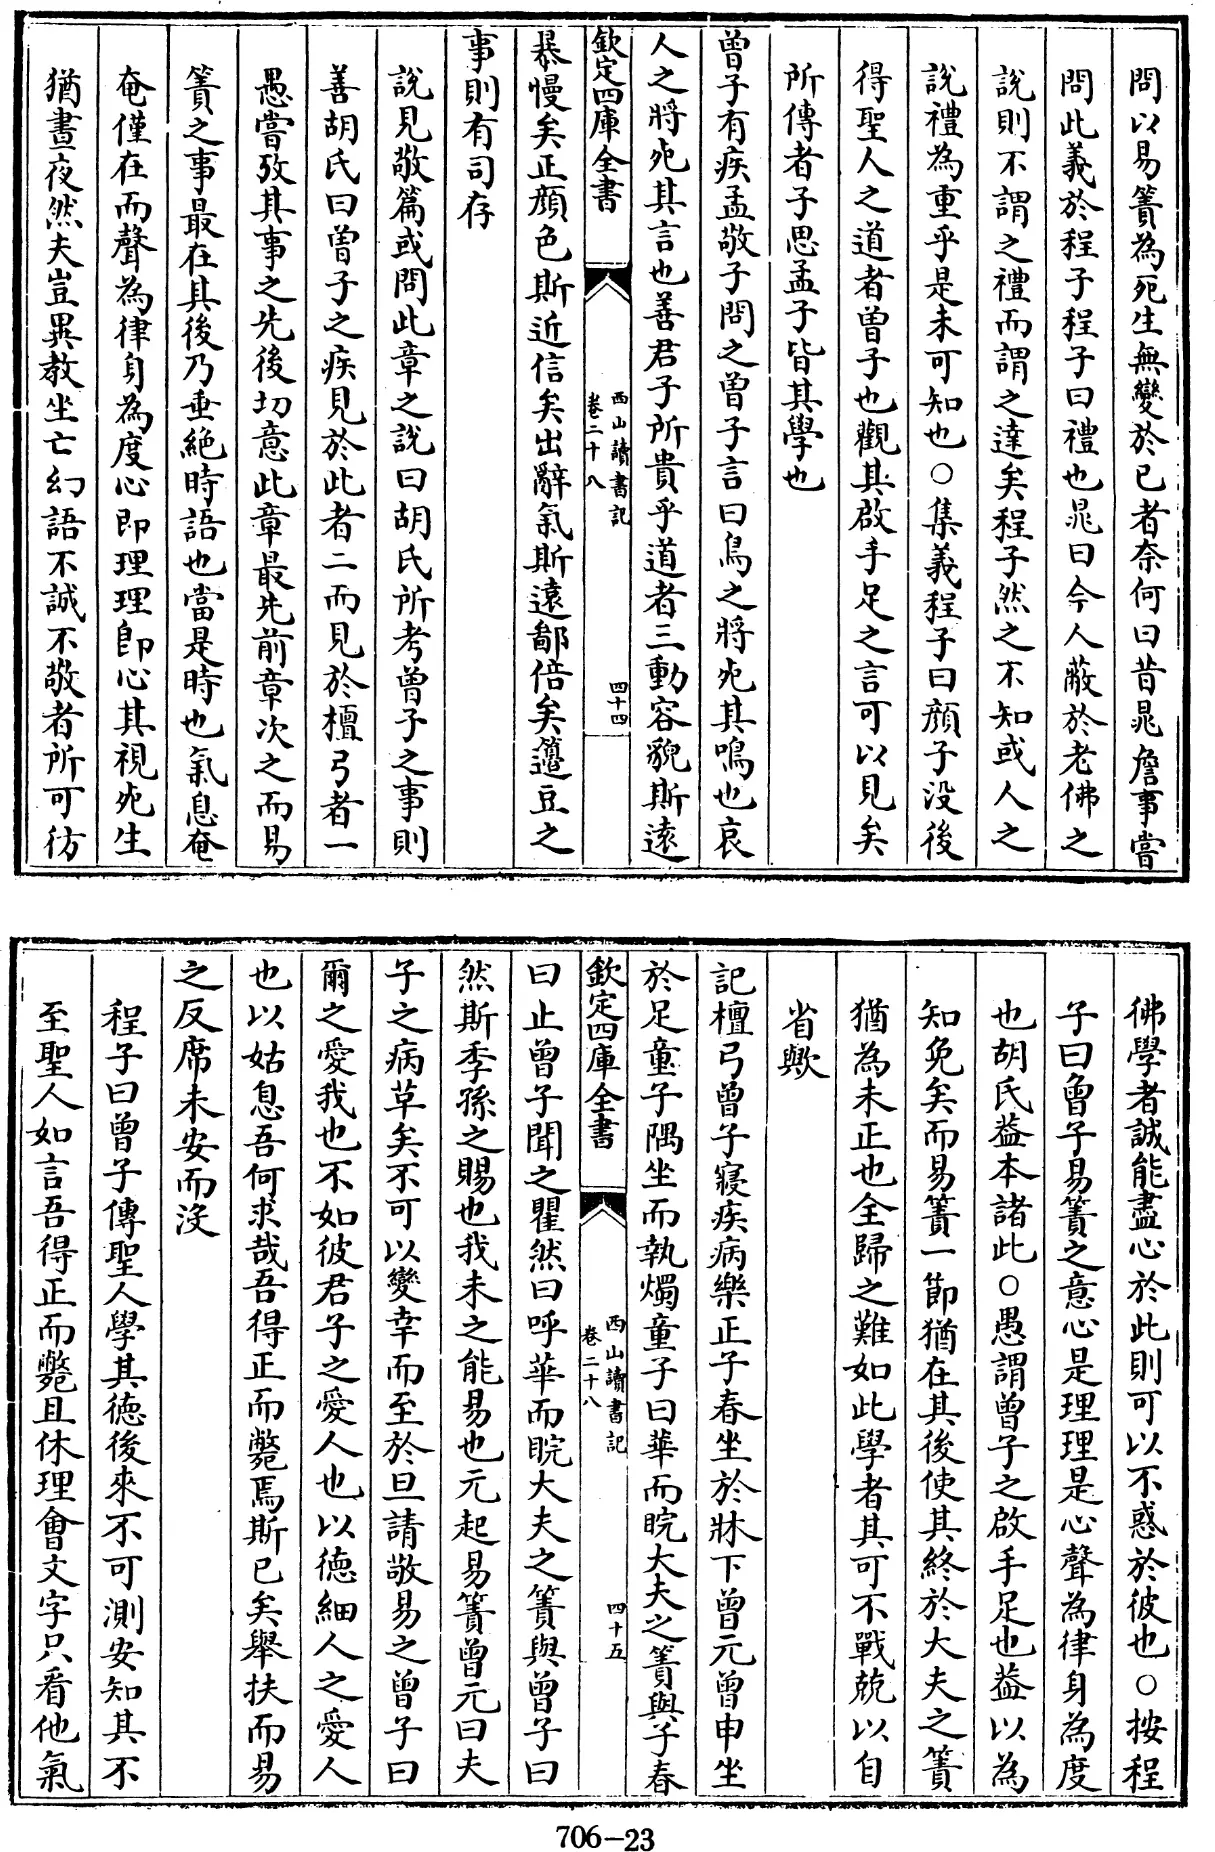 問以易簀為死生無變於已者奈何曰昔晁詹事嘗
問此義於程子程子曰禮也晁曰今人蔽於老佛之
說則不謂之禮而謂之達矣程子然之不知或人之
說禮為重乎是未可知也○集義程子曰顔子沒後
得聖人之道者曾子也觀其啟手足之言可以見矣
所傳者子思孟子皆其學也
曾子有疾孟敬子問之曾子言曰鳥之將死其鳴也哀
人之將死其言也善君子所貴乎道者三動容貌斯遠
欽定四庫全書
西山讀書記
卷二十八
四十四
暴慢矣正顔色斯近信矣出辭氣斯遠鄙倍矣籩豆之
事則有司存
說見敬篇或問此章之說曰胡氏所考曾子之事則
善胡氏曰曾子之疾見於此者二而見於檀弓者一
愚嘗攷其事之先後切意此章最先前章次之而易
簀之事最在其後乃垂絶時語也當是時也氣息奄
奄僅在而聲為律身為度心即理理即心其視死生
猶晝夜然夫豈異教坐亡幻語不誠不敬者所可彷
彿學者誠能盡心於此則可以不惑於彼也○按程
子曰曾子易簀之意心是理理是心聲為律身為度
也胡氏益本諸此○愚謂曾子之啟手足也益以為
知免矣而易簀一節猶在其後使其終於大夫之簀
猶為未正也全歸之難如此學者其可不戰兢以自
省歟
記檀弓曾子寢疾病樂正子春坐於牀下曾元曾申坐
於足童子隅坐而執燭童子曰華而睆大夫之簀與子春
欽定四庫全書
西山讀書記
卷二十八
四十五
曰止曾子聞之瞿然曰呼華而睆大夫之簀與曾子曰
然斯季孫之賜也我未之能易也元起易簀曾元曰夫
子之病革矣不可以變幸而至於旦請敬易之曾子曰
爾之愛我也不如彼君子之愛人也以德細人之愛人
也以姑息吾何求哉吾得正而斃焉斯已矣舉扶而易
之反席未安而沒
程子曰曾子傳聖人學其德後來不可測安知其不
至聖人如言吾得正而斃且休理會文字只看他氣
706-23